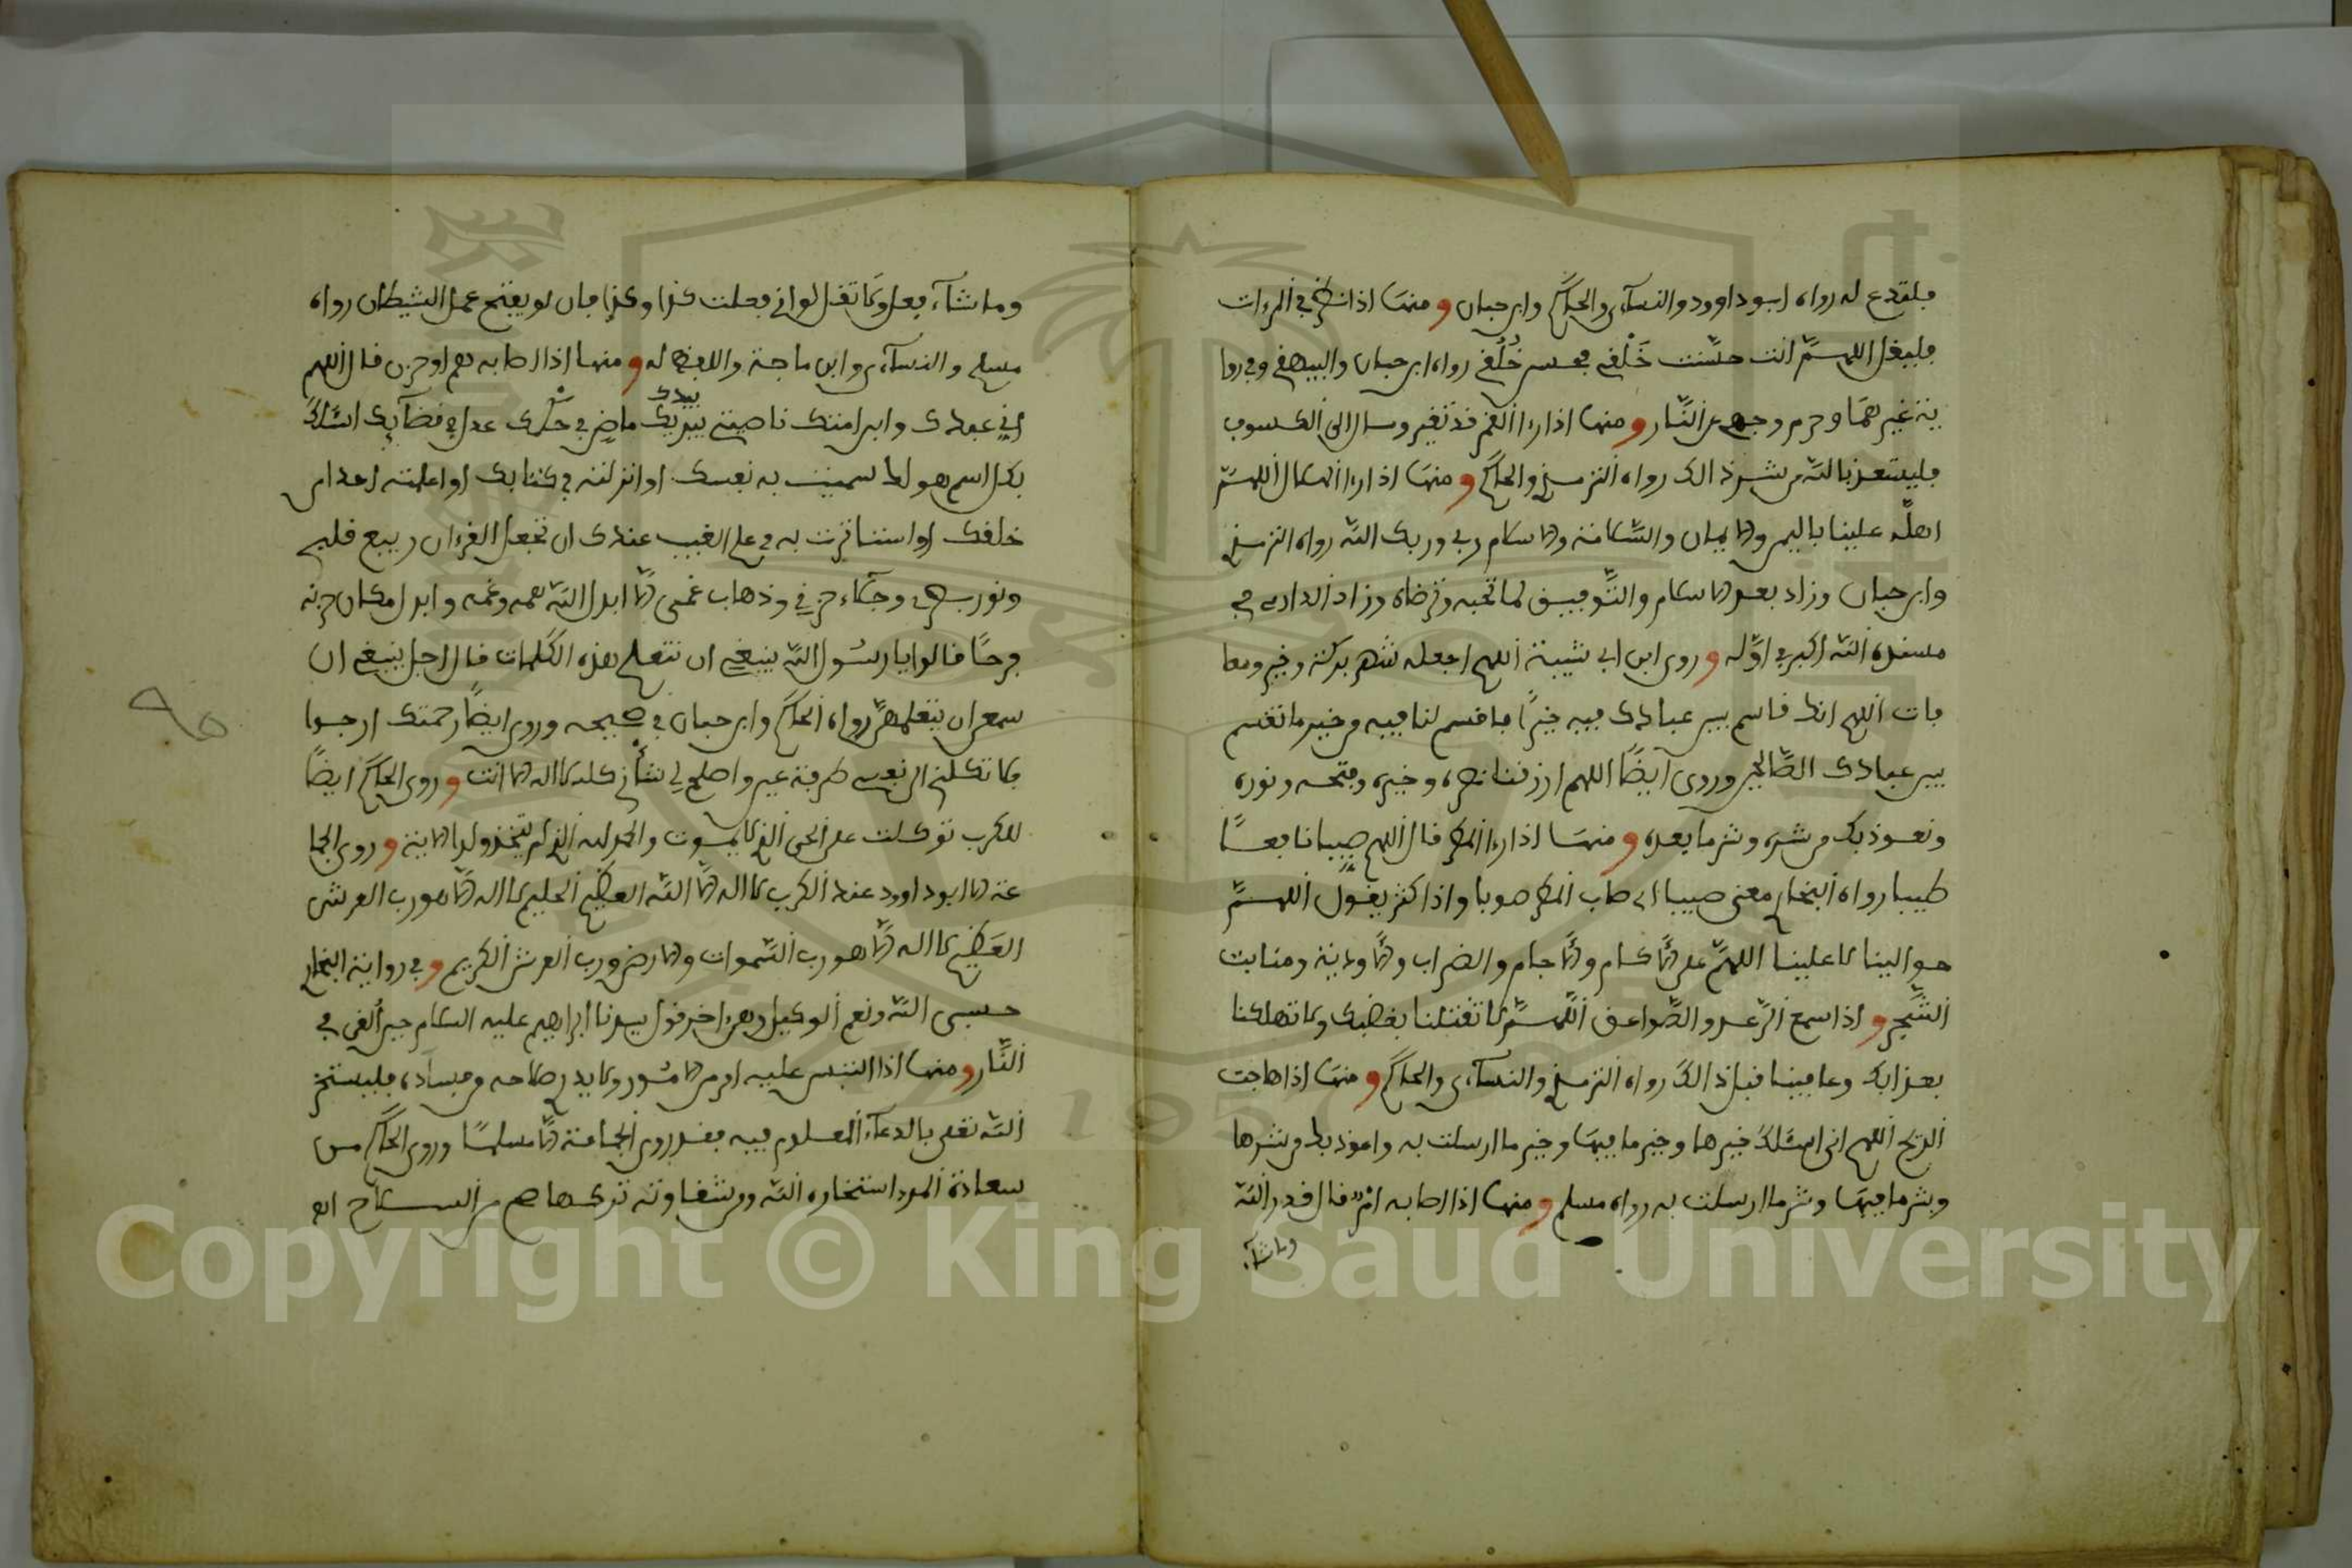 فليقدع له رواه ابو داوود والنسآءي والحاكم وابن حبان ومنها اذا نظر في المرءات
فليقل اللهمّ انت حسّنت خَلْقي فحسن خُلُقي رواه ابن حبان والبيهقي وفي روا
ية غيرهما وحرم وجهي عن النّار ومنها اذا رءا القمر قد تغير وسار الى الكسوف
فليستعذ بالله من شر ذالك رواه الترمذي والحاكم ومنها اذا رءا الهلال قال اللهمّ
اهلّه علينا باليمن والايمان والسّلامة والاسلام ربي وربك الله رواه الترمذي
وابن حبان وزاد بعد الاسلام والتّوفيق لما تحبه وترضاه وزاد الدارمي في
مسنده الله اكبر في اوّله وروى ابن ابي شيبة اللهم اجعله شهر بركة وخير ومعا
فات اللهم انك قاسم بين عبادك فيه خيرًا فاقسم لنا فيه من خير ما تقسم
بين عبادك الصّالحين وروى ايضًا اللهم ارزقنا نصره وخيره وفتحه ونوره
ونعوذ بك من شره وشر ما بعده ومنها اذا رءا المطر قال اللهم صيبا نافعًا
طيبا رواه البخاري معنى صيبا اي صاب المطر صوبا واذا كثر يقول اللهمّ
حوالينا لا علينا اللهمّ على الأكام والأجام والضراب والأودية ومنابت
الشّجر واذا سمع الرّعد والصّواعق اللّهمّ لا تقتلنا بغضبك ولا تهلكنا
بعذابك وعافينا قبل ذالك رواه الترمذي والنسآءي والحاكم ومنها اذا هاجت
الريح اللهم اني اسئلك خيرها وخير ما فيها وخير ما ارسلت به واعوذ بك من شرها
وشر ما فيها وشر ما ارسلت به رواه مسلم ومنها اذا اصابه امر قال قدر الله
وما شآء
وما شآء فعل ولا تقل لو اني فعلت كذا وكذا فان لو يفتح عمل الشيطان رواه
مسلم والنسآءي وابن ماجة واللفظ له ومنها اذا اصابه هم او حزن قال اللهم
اني عبدك وابن امتك ناصيتي بيدك ماضٍ في حكمك عدل في قضآيك اسئلك
بيدك
بكل اسم هو لك سميت به نفسك او انزلته في كتابك او اعلمته احدا من
خلقك او استاثرت به في علم الغيب عندك ان تجعل القرءان ربيع قلبي
ونور بصري وجلاء حزني وذهاب غمي الّا ابدل الله همه وغمه وابدل مكان حزنه
فرحًا قالوا يا رسُول الله ينبغي ان نتعلم هذه الكلمات قال اجل ينبغي ان
سمعهن ان يتعلمهنّ رواه الحاكم وابن حبان في صحيحه وروى ايضًا رحمتك ارجوا
فلا تكلني الى نفسي طرفة عين واصلح لي شأني كله لا اله الا انت وروى الحاكم ايضًا
للكرب توكلت على الحي الذي لا يموت والحمد لله الذي لم يتخذ ولدا الاية وروى الجما
عة الا ابو داوود عند الكرب لا اله الّا الله العظيم الحليم لا اله الّا هو رب العرش
العَظيم لا اله الّا هو رب السّموات والارض ورب العرش الكريم وفي رواية البخاري
حسبي الله ونعم الوكيل وهو اخر قول سيدنا ابراهيم عليه السلام حين ألقي في
النّار ومنها اذا التبس عليه امر من الامُور ولا يدر صلاحه من فساده فليستخر
الله تعلى بالدعآء المعلوم فيه فقد روى الجماعة الّا مسلمًا وروى الحاكم من
سعادة المرء استخاره الله ومن شقاوته تركها هم من السلاح اهـ